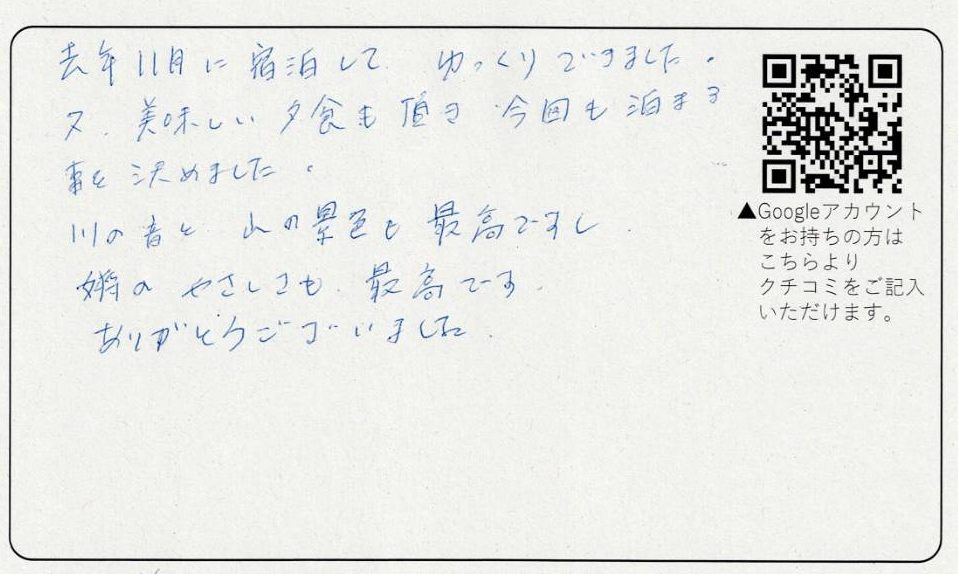 去年11月に宿泊して、ゆっくりできました。
又、美味しい夕食も頂き 今回も泊まる
事を決めました。
川の音と、山の景色も最高ですし、
のやさしさも、最高です。
ありがとうございました。
▲Googleアカウント
をお持ちの方は
こちらより
クチコミをご記入
いただけます。